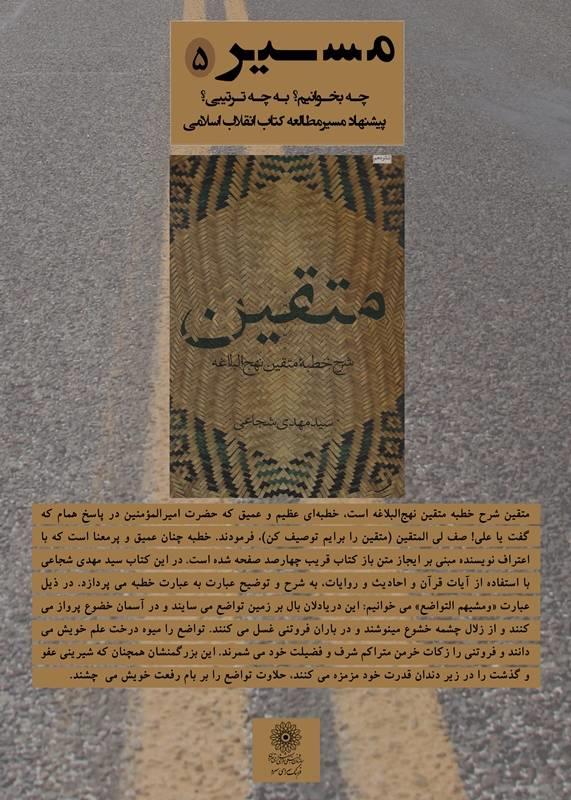 مسیر ۵
چه بخوانیم؟ به چه ترتیبی؟
پیشنهاد مسیر مطالعه کتاب انقلاب اسلامی
متقین
شرح خطبهٔ متقین نهج‌البلاغه
سیدمهدی شجاعی
متقین شرح خطبه متقین نهج‌البلاغه است، خطبه‌ای عظیم و عمیق که حضرت امیرالمؤمنین در پاسخ همام که
گفت یا علی! صف لی المتقین (متقین را برایم توصیف کن)، فرمودند. خطبه چنان عمیق و پرمعنا است که با
اعتراف نویسنده مبنی بر ایجاز متن باز کتاب قریب چهارصد صفحه شده است. در این کتاب سید مهدی شجاعی
با استفاده از آیات قرآن و احادیث و روایات، به شرح و توضیح عبارت به عبارت خطبه می پردازد. در ذیل
عبارت «ومشیهم التواضع» می خوانیم: این دریادلان بال بر زمین تواضع می سایند و در آسمان خضوع پرواز می
کنند و از زلال چشمه خشوع مینوشند و در باران فروتنی غسل می کنند. تواضع را میوه درخت علم خویش می
دانند و فروتنی را زکات خرمن متراکم شرف و فضیلت خود می شمرند. این بزرگمنشان همچنان که شیرینی عفو
و گذشت را در زیر دندان قدرت خود مزمزه می کنند، حلاوت تواضع را بر بام رفعت خویش می چشند.